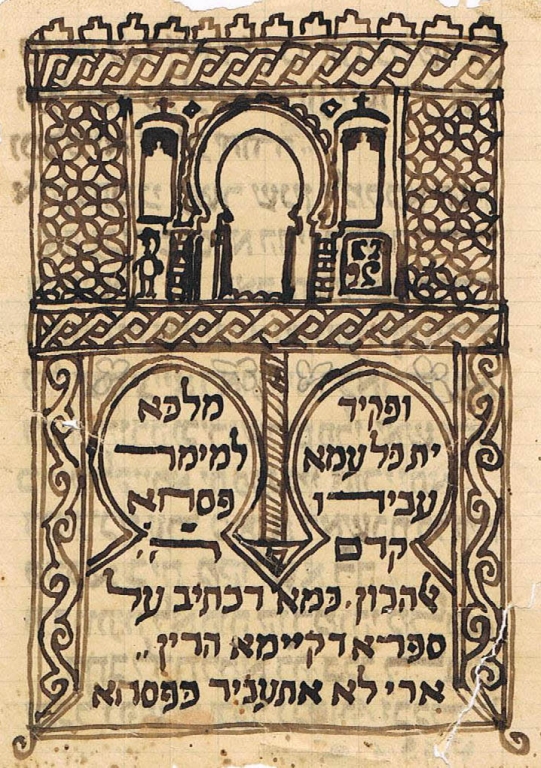 ופקיד מלכא
ית כל עמא למימר
עבידו פסחא
קדם ה'
אלהכון. כמא דכתיב על
ספרא דקיימא הדין,,
ארי לא אתעביד כפסחא